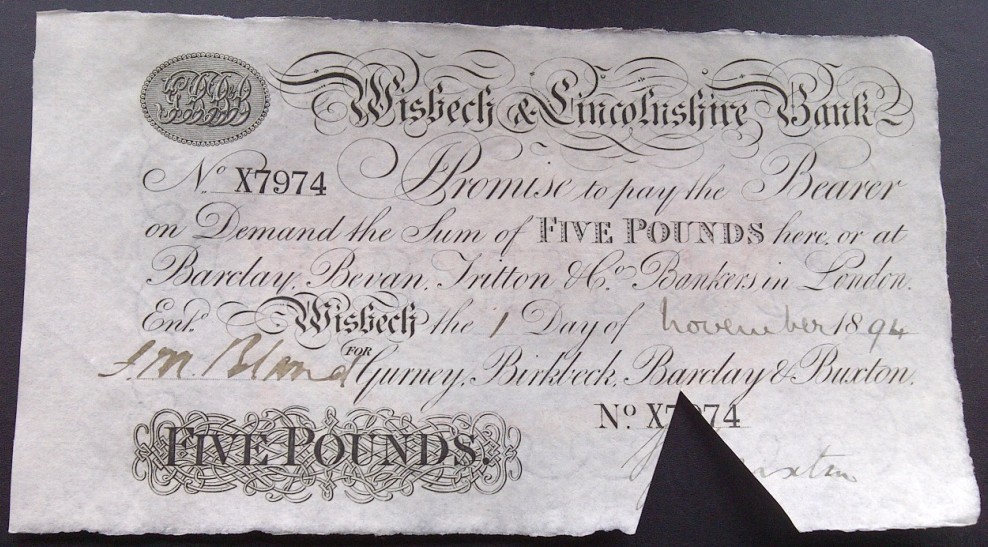 Wisbech & Lincolnshire Bank
No. X7974 I Promise to pay the Bearer
on Demand the Sum of FIVE POUNDS here, or at
Barclay, Bevan, Tritton & Co. Bankers in London.
Entd. Wisbech the 1 Day of november 1894
FOR
Gurney, Birkbeck, Barclay & Buxton.
No. X7 74
FIVE POUNDS.